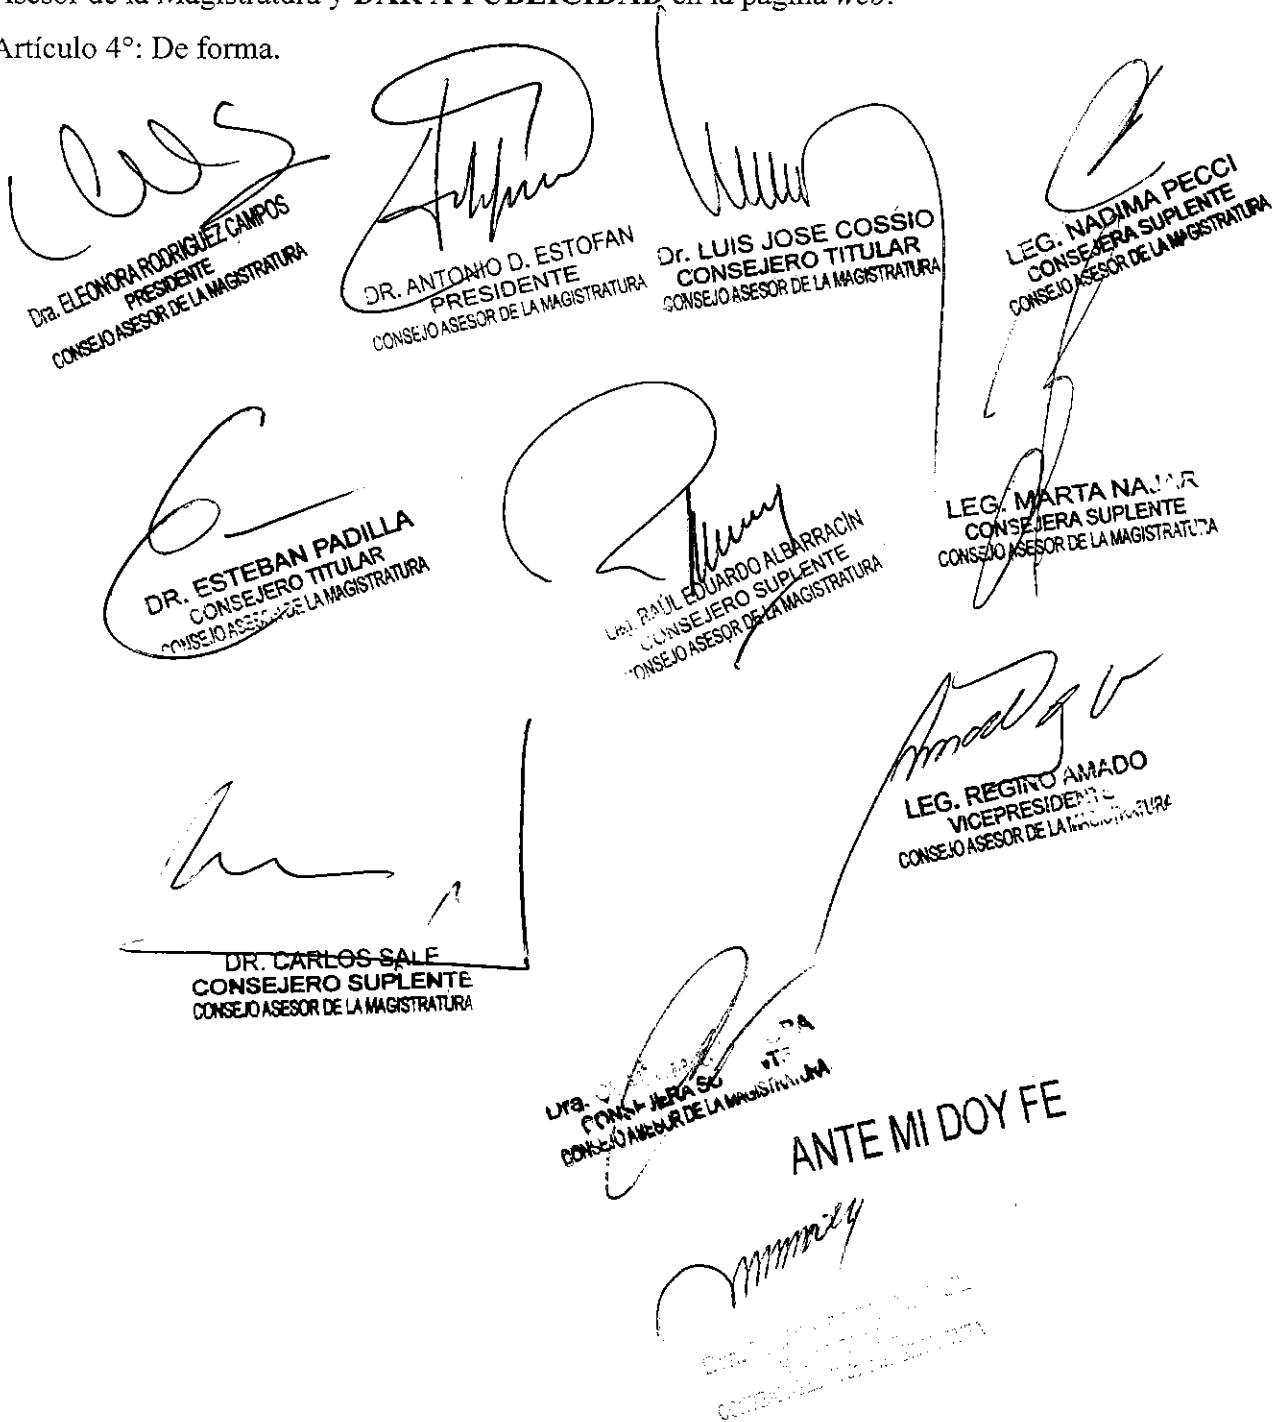 Asesor de la Magistratura y DAR A PUBLICIDAD en la página web.
Artículo 4°: De forma.
Dra. ELEONORA RODRIGUEZ CAMPOS
PRESIDENTE
CONSEJO ASESOR DE LA MAGISTRATURA
DR. ANTONIO D. ESTOFAN
PRESIDENTE
CONSEJO ASESOR DE LA MAGISTRATURA
Dr. LUIS JOSE COSSIO
CONSEJERO TITULAR
CONSEJO ASESOR DE LA MAGISTRATURA
LEG. NADIMA PECCI
CONSEJERA SUPLENTE
CONSEJO ASESOR DE LA MAGISTRATURA
DR. ESTEBAN PADILLA
CONSEJERO TITULAR
CONSEJO ASESOR DE LA MAGISTRATURA
RAÚL EDUARDO ALBARRACÍN
CONSEJERO SUPLENTE
CONSEJO ASESOR DE LA MAGISTRATURA
LEG. MARTA NAJAR
CONSEJERA SUPLENTE
CONSEJO ASESOR DE LA MAGISTRATURA
LEG. REGINO AMADO
VICEPRESIDENTE
CONSEJO ASESOR DE LA MAGISTRATURA
DR. CARLOS SALE
CONSEJERO SUPLENTE
CONSEJO ASESOR DE LA MAGISTRATURA
Dra.
CONSEJERA
CONSEJO ASESOR DE LA MAGISTRATURA
ANTE MI DOY FE